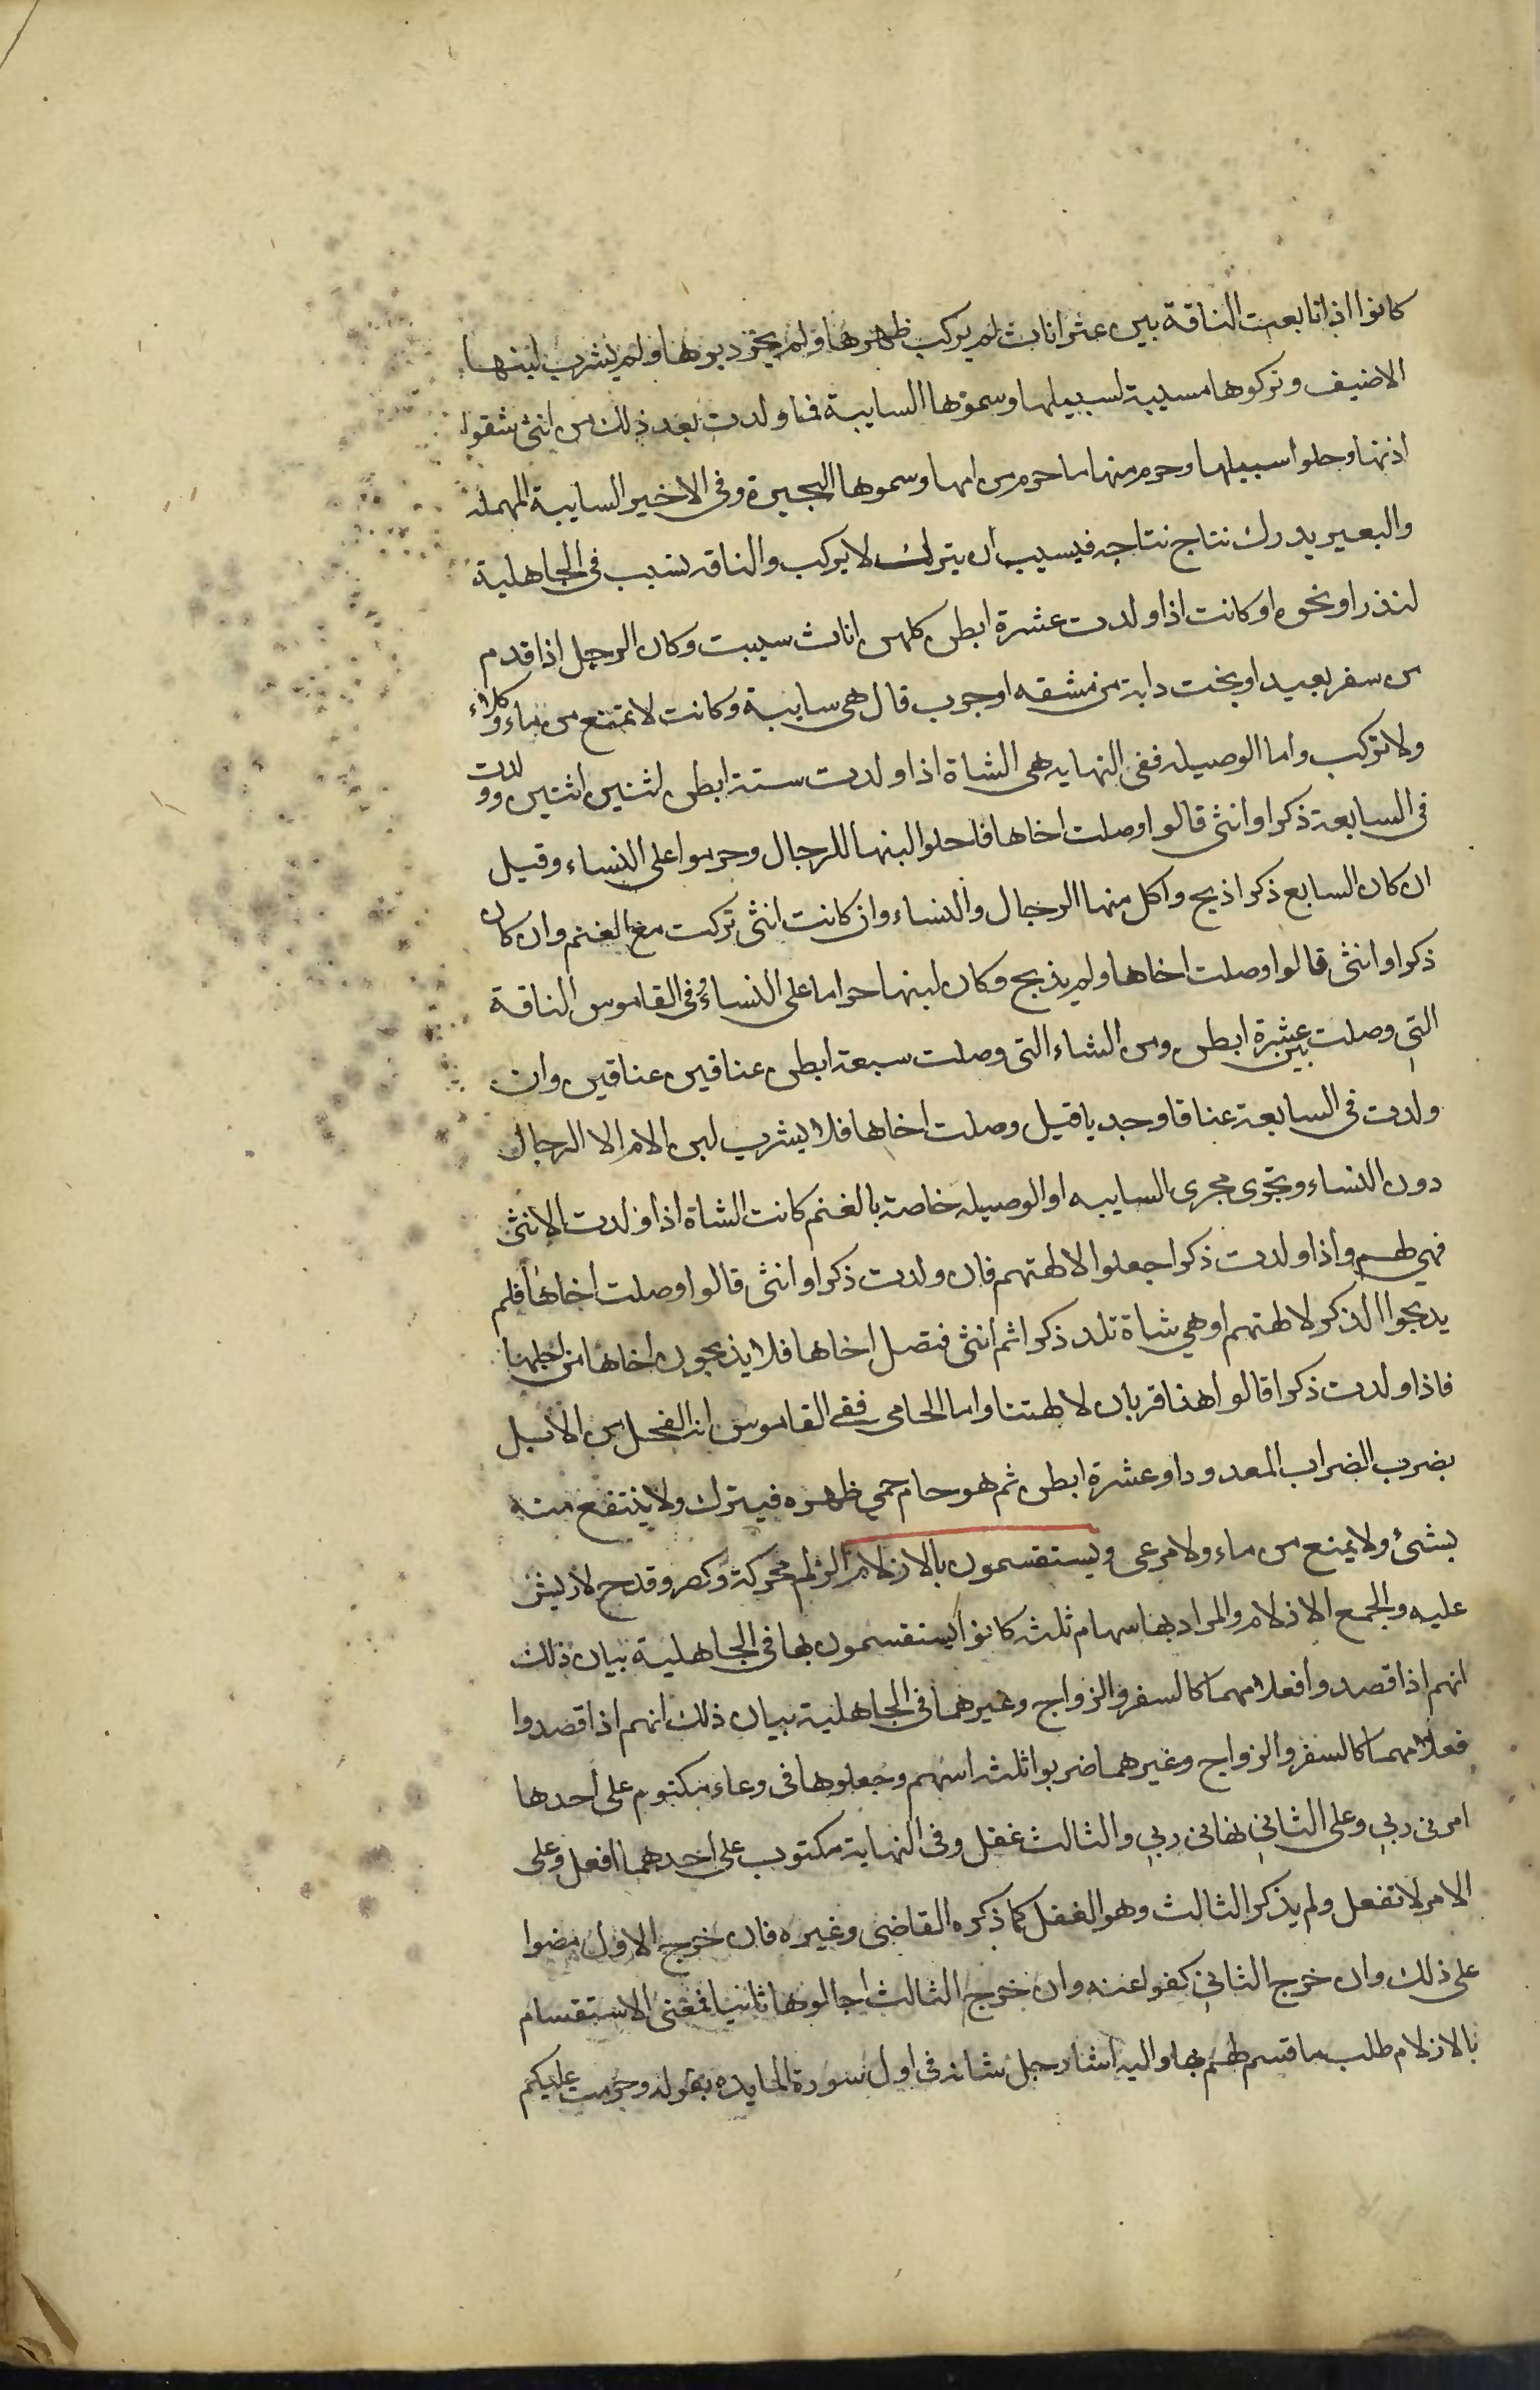 كانوا اذا تابعت الناقة بين عشر اناث لم يركب ظهرها ولم يجز وبرها ولم يشرب لبنها
الا ضيف وتركوها مسيبة لسبيلها وسموها السايبة فما ولدت بعد ذلك من انثى شقوا
اذنها وحلوا سبيلها وحرم منها ما حرم من امها وسموها البحيرة وفى الاخير السايبة المهملة
والبعير يدرك نتاج نتاجه فيسيب ان يترك لا يركب والناقه تسيب فى الجاهلية
لنذر او نحوه او كانت اذا ولدت عشرة ابطن كلهن اناث سيبت وكان الرجل اذا قدم
من سفر بعيد او نجت دابة من مشقه او حرب قال هى سايبة وكانت لا تمنع من ماء وكلاء
ولا تركب واما الوصيله ففى النهايه هى الشاة اذا ولدت ستة ابطن اثنين اثنين وولدت
فى السابعة ذكرا وانثى قالوا وصلت اخاها فاحلوا لبنها للرجال وحرموا على النساء وقيل
ان كان السابع ذكرا ذبح واكل منها الرجال والنساء وان كانت انثى تركت مع الغنم وان كان
ذكرا وانثى قالوا وصلت اخاها ولم يذبح وكان لبنها حراما على النساء وفى القاموس الناقة
التى وصلت بين عشرة ابطن ومن الشاء التى وصلت سبعة ابطن عناقين عناقين وان
ولدت فى السابعة عناقا وجديا قيل وصلت اخاها فلا يشرب لبن الام الا الرجال
دون النساء وتجرى مجرى السايبه او الوصيله خاصة بالغنم كانت الشاة اذا ولدت الانثى
فهى لهم واذا ولدت ذكرا جعلوا لالهتهم فان ولدت ذكرا وانثى قالوا وصلت اخاها فلم
يدبحوا الذكر لالهتهم او هى شاة تلد ذكرا ثم انثى فتصل اخاها فلا يذبحون اخاها من اجلها
فاذا ولدت ذكرا قالوا هذا قربان لالهتنا واما الحامى ففى القاموس انه الفحل من الابل
بضرب الضراب المعدود او عشرة ابطن ثم هو حام حمى ظهره فيترك ولا ينتفع منه
بشئ ولا يمنع من ماء ولا مرعى ويستقسمون بالازلام الزلم محركة وكصرد قدح لا ريش
عليه والجمع الازلام والمراد بها سهام ثلث كانوا يستقسمون بها فى الجاهلية بيان ذلك
انهم اذا قصدوا فعلا مهما كالسفر والزواج وغيرهما فى الجاهلية بيان ذلك انهم اذا قصدوا
فعلا مهما كالسفر والزواج وغيرهما ضربوا ثلث اسهم وجعلوها فى وعاء مكتوم على احدها
امرنى ربي وعلى الثاني نهاني ربي والثالث غفل وفى النهاية مكتوب على احدهما افعل وعلى
الامر لا تفعل ولم يذكر الثالث وهو الغفل كما ذكره القاضى وغيره فان خرج الاول مضوا
على ذلك وان خرج الثاني كفوا عنه وان خرج الثالث اجالوها ثانيا فمعنى الاستقسام
بالازلام طلب ما قسم لهم بها واليه اشار جل شانه فى اول سورة المايده بقوله وحرمت عليكم